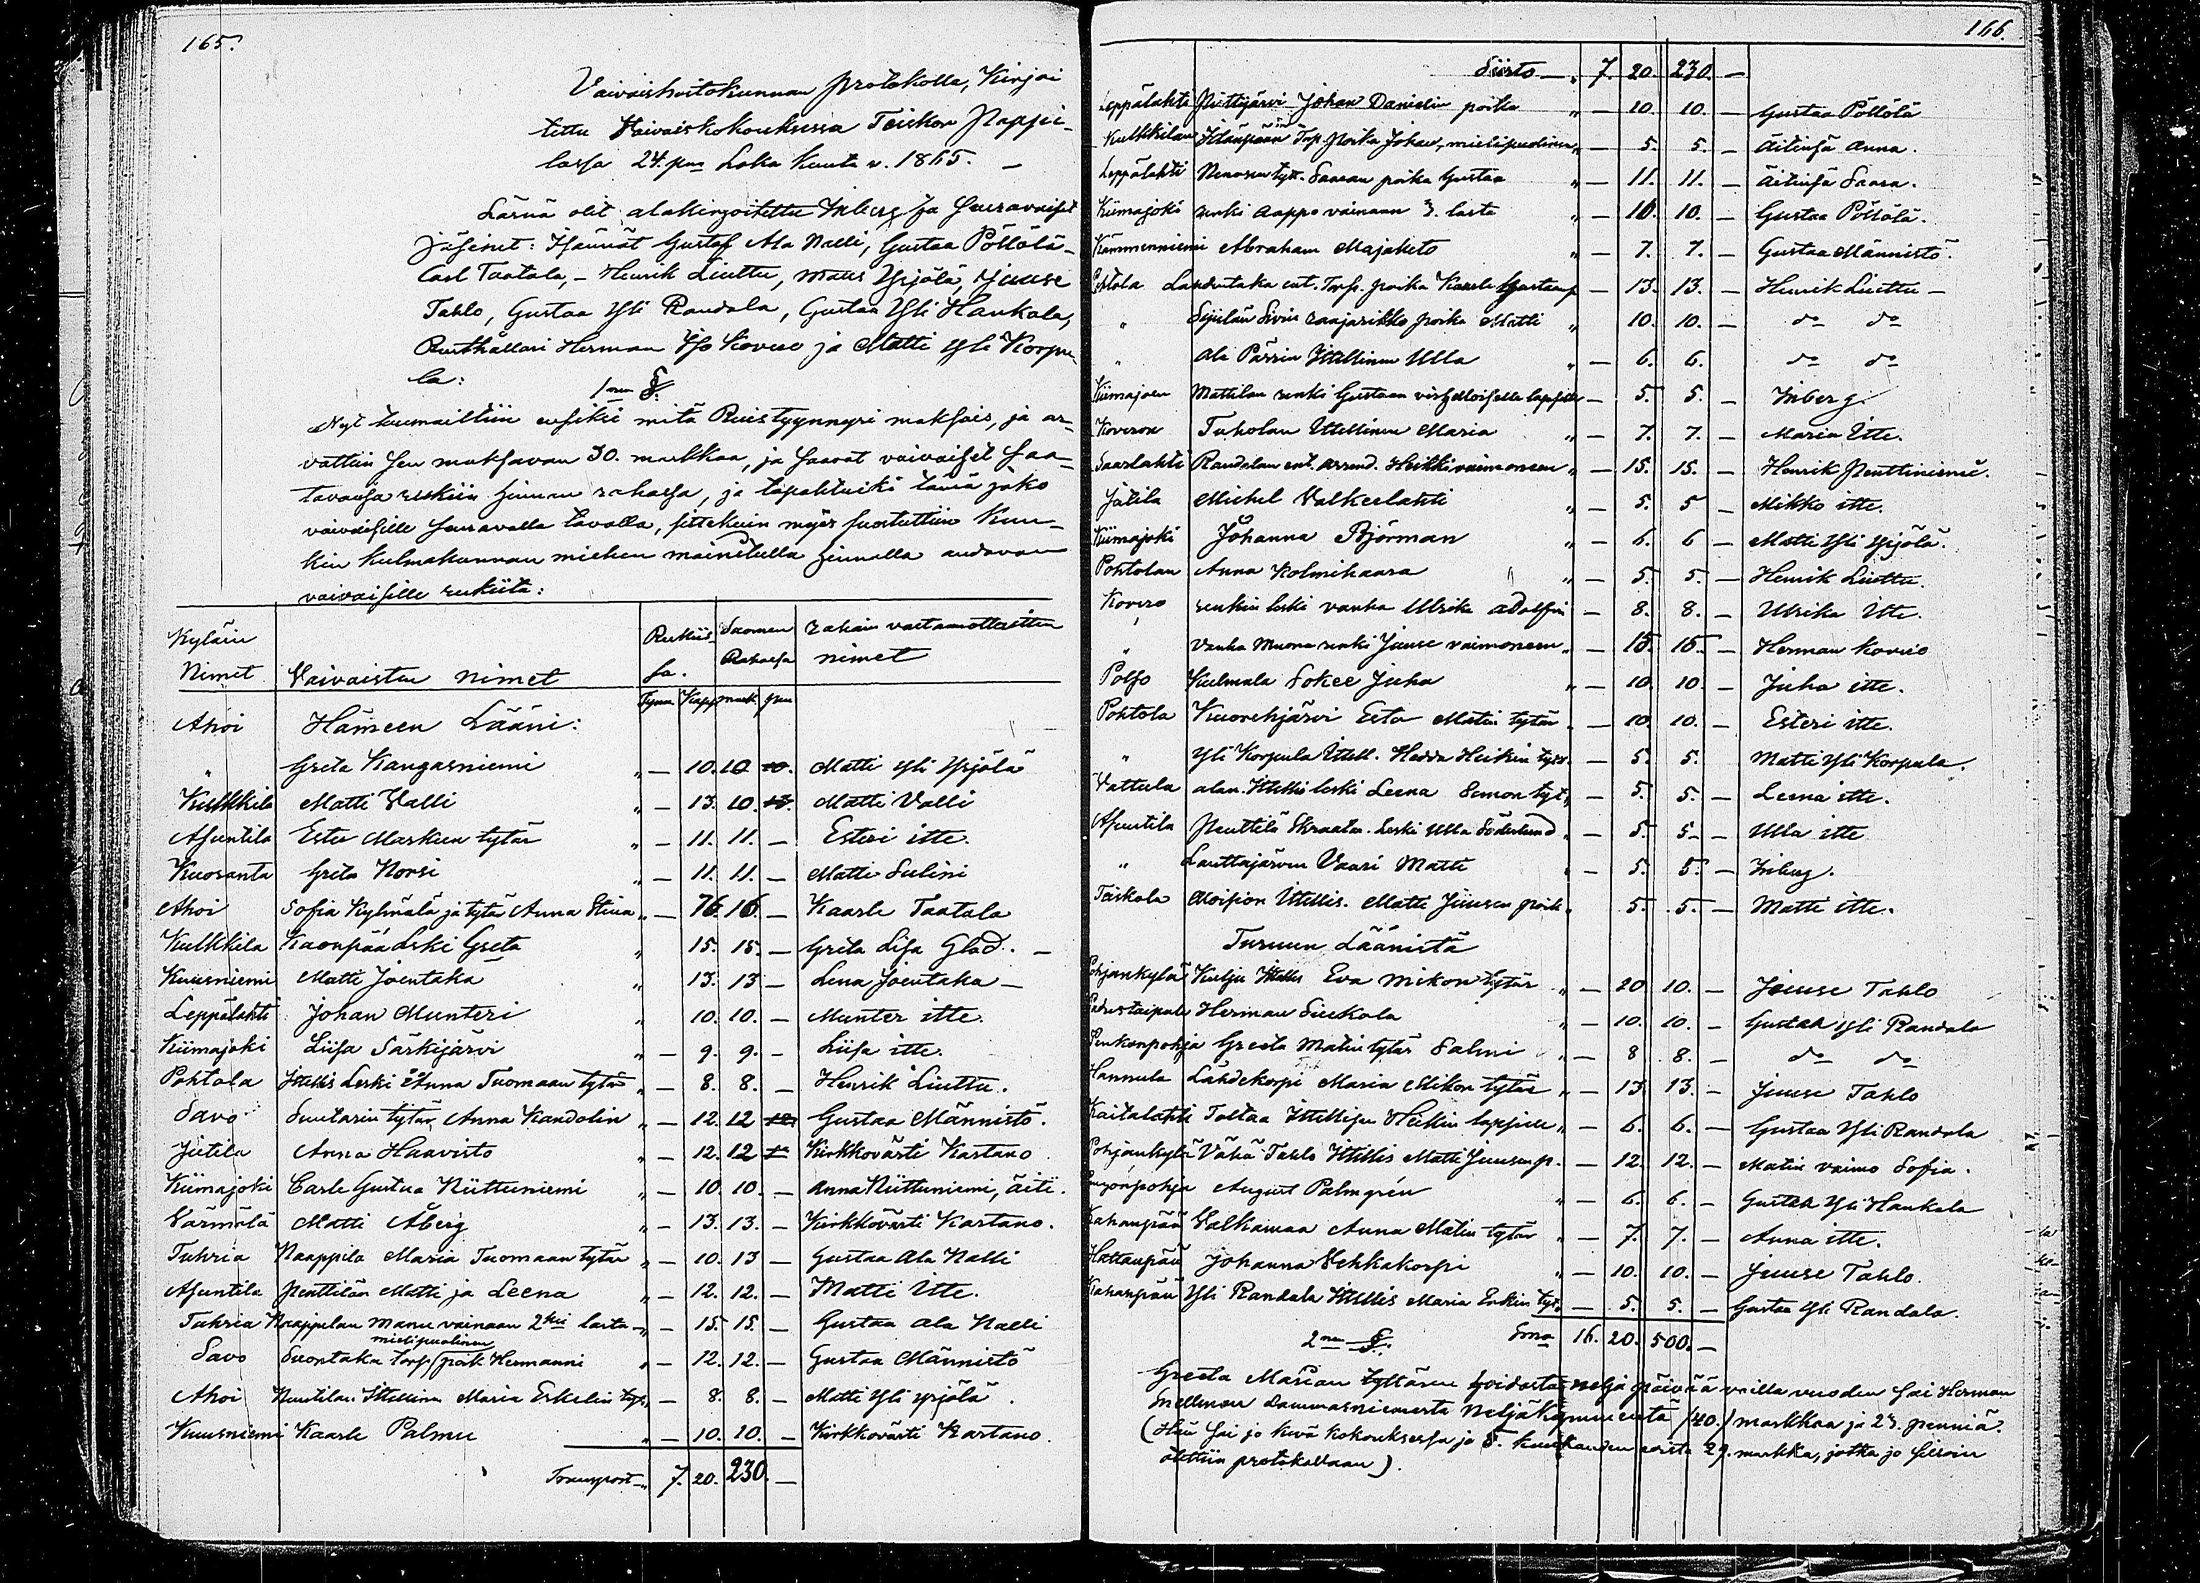 165.
Vaivaishoitokunnan protokolla, Kirjoi
tettu Vaivaiskokouksessa Teiskon Pappi-
lassa 24. p:nä Loka Kuuta v. 1865. —
Läsnä olit alakirjoitettu Inberg ja seuraavaiset
jäsenet: Isännät Gustaf Ala Nalli, Gustaa Pöllölä –
Carl Taatala, – Henrik Liuttu, Matts Yrjölä, Juuse
Tahlo, Gustaa Yli Randala, Gustaa Yli Hankala,
Rusthållari Herman Iso Kovero ja Matti Yli Korpu
la:
1nen §.
Nyt tuumailtiin ensiksi mitä Ruistynnyri maksais, ja ar-
vattiin sen maksavan 30. markkaa, ja saavat vaivaiset saa-
tavansa rukiin hinnan rahassa, ja tapahtuiki tämä jako
vaivaisille seuraavalla tavalla, sittekuin myös suostuttiin Kun-
kin kulmakunnan miehen mainitulla hinnalla andavan
vaivaisille rukiita:
Kyläin Nimet Vaivaisten nimet Rukiis sa. Suomen Rahassa rahain vastaanottaitten nimet
Tynn Kapp mark pen
Ahoi Hämeen Lääni:
" Greta Kangasniemi " — 10. 10 10. Matti Yli Yrjölä
Kulkkila Matti Valli " — 13. 10. 13. Matti Valli
Asuntila Ester Markun tytär " — 11. 11. — Esteri itte.
Kuoranta Greta Norsi " — 11. 11. — Matti Sulini
Ahoi Sofia Kylmälä ja tytär Anna Stina " — 16. 16. — Kaarle Taatala
Kulkkila Kaonpää Leski Greta " 15. 15. — Greta Lisa Glad. —
Kuusniemi Matti Joentaka " 13. 13 — Lena Joentaka —
Leppälahti Johan Munteri " 10. 10. — Munter itte.
Kiimajoki Liisa Särkijärvi " — 9. 9. — Liisa itte.
Pohtola Itellis Leski Anna Tuomaan tytär " — 8. 8. — Henrik Liuttu.
Savo Suutarin tytär Anna Kandolin " — 12. 12 12. Gustaa Männistö.
Jutila Anna Haavisto " — 12. 12 — Kirkkovärti Kartano
Kiimajoki Carle Gustaa Niittuniemi " — 10. 10. — Anna Niittuniemi, äiti.
Värmälä Matti Åberg " — 13. 13. — Kirkkovärti Kartano.
Tuhria Naappila Maria Tuomaan tytär " — 10. 13 — Gustaa Ala Nalli
Asuntila Penttilän Matti ja Leena " — 12. 12. — Matti Itte.
Tuhria Naappilan Manu vainaan 2ksi lasta " — 15. 15. — Gustaa Ala Nalli
mielipuolinen
Savo Suontaka torp. poik Hermanni " — 12. 12. — Gustaa Männistö
Ahoi Nuutilan Itellinen Maria Erkelin tyt. — 8. 8. — Matti Yli Yrjölä.
Kuusniemi Kaarle Palmu " — 10. 10. — Kirkkovärti Kartano.
Transport — " 7. 20. 230. —
166.
Siirto — " 7. 20. 230. —
Leppälahti Pirttijärvi Johan Danielin poika " — 10. 10. — Gustaa Pöllölä
Kulkkilan Torp. poika Johan, mielipuolinen " — 5. 5. — Äitinsä Anna.
Leppälahti Nenosen tytt. Saaran poika Gustaa " — 11. 11. — äitinsä Saara.
Kiimajoki renki Aappo vainaan 3. lasta " — 10. 10. — Gustaa Pöllölä.
Kämmenniemi Abraham Majalieto " — 7. 7. — Gustaa Männistö.
Pohtola Landentaka ent. Torp. poika Kaarle Gustaa — 13. 13. — Henrik Liuttu —
" raajarikko poika Matti " 10. 10. — do do
" Ala Pärrin Itellinen Ulla " — 6. 6. — do do
Kiimajoen Mattilan renki Gustaan lapselle — 5. 5. — Inberg.
Koveron Tuholan Itellinen Maria " — 7. 7. — Maria Itte.
Saarlahti Randalan ent. arrend. Heikki vaimoneen " — 15. 15. — Henrik Penttiniemi.
Jutila Michel Valkeelahti " — 5. 5 — Mikko itte.
Kiimajoki Johanna Björman " — 6. 6 — Matti Yli Yrjölä.
Pohtolan Anna Kolmihaara " — 5. 5. — Henrik Liuttu.
Kovero renkin leski vanha Ulrika Adolfin — 8. 8. — Ulrika Itte.
" Vanha Muona renki Juuse vaimoneen " — 15. 15. — Herman Kovero
Polso Kulmala Sokee Juha " — 10. 10. — Juha itte.
Pohtola Kuorehjärvi Ester Matin tytär " — 10. 10. — Esteri itte.
" Yli Korpula Itell. Hedda Heikin tytr. — 5. 5. Matti Yli Korpula.
Vattula alan. Itellis leski Leena Simon tyt. — 5. 5. — Leena itte.
Asuntila Penttilä Skraatar. Leski Ulla Söderlund " — 5. 5 — Ulla itte
" Lauttajärven Vaari Matti " — 5. 5. — Inberg.
Teiskola Moision Itellis. Matti Juusen poik. 5. 5. — Matti itte.
Turuun Läänistä
Pohjankylä Kulju Itellis Eva Mikon tytär " — 20 10. — Juuse Tahlo
Padustaipale Herman Siukola " — 10. 10. — Gustaa Yli Randala
Penkonpohja Greeta Matin tytär Salmi " — 8 8. — do do
Hannula Lähdekorpi Maria Mikon tytär " — 13. 13. — Juuse Tahlo
Kaitalahti Toltaa Itellisen Heikin lapsille " — 6. 6. — Gustaa Yli Randala
Pohjankylä Vähä Tahlo Itellis Matti Juusen p. — 12. 12. — Matin vaimo Sofia.
August Palmgrén " — 6. 6. — Gustaa Yli Hankala
Kahanpää Valkamaa Anna Matin tytär " — 7. 7. — Anna itte.
Hattanpää Johanna Vehkakorpi " — 10. 10. — Juuse Tahlo.
Kahanpää Yli Randala Itellis Maria Erkin tyt. — 5. 5. — Gustaa Yli Randala.
2nen §. Sma 16. 20. 500. —
Greeta Marian tyttären hoidosta neljä päivää vailla vuoden sai Herman
Snellman Lammasniemestä Neljäkymmentä /40./ markkaa ja 23. penniä.
(Hän sai jo kevä kokouksessa jo 5. kuukauden eistä 29. markkaa, jotka jo silloin
otettiin protokollaan).